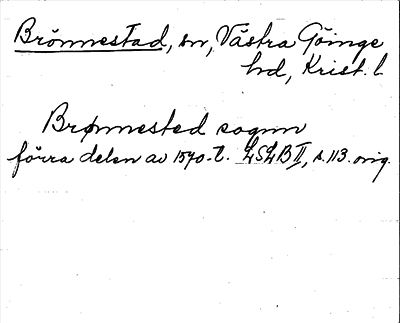 Brönnestad, sn, Västra Göinge
hd, Krist. l
Brønnested sognn
förra delen av 1570-t. LSLB II, s. 113. orig.